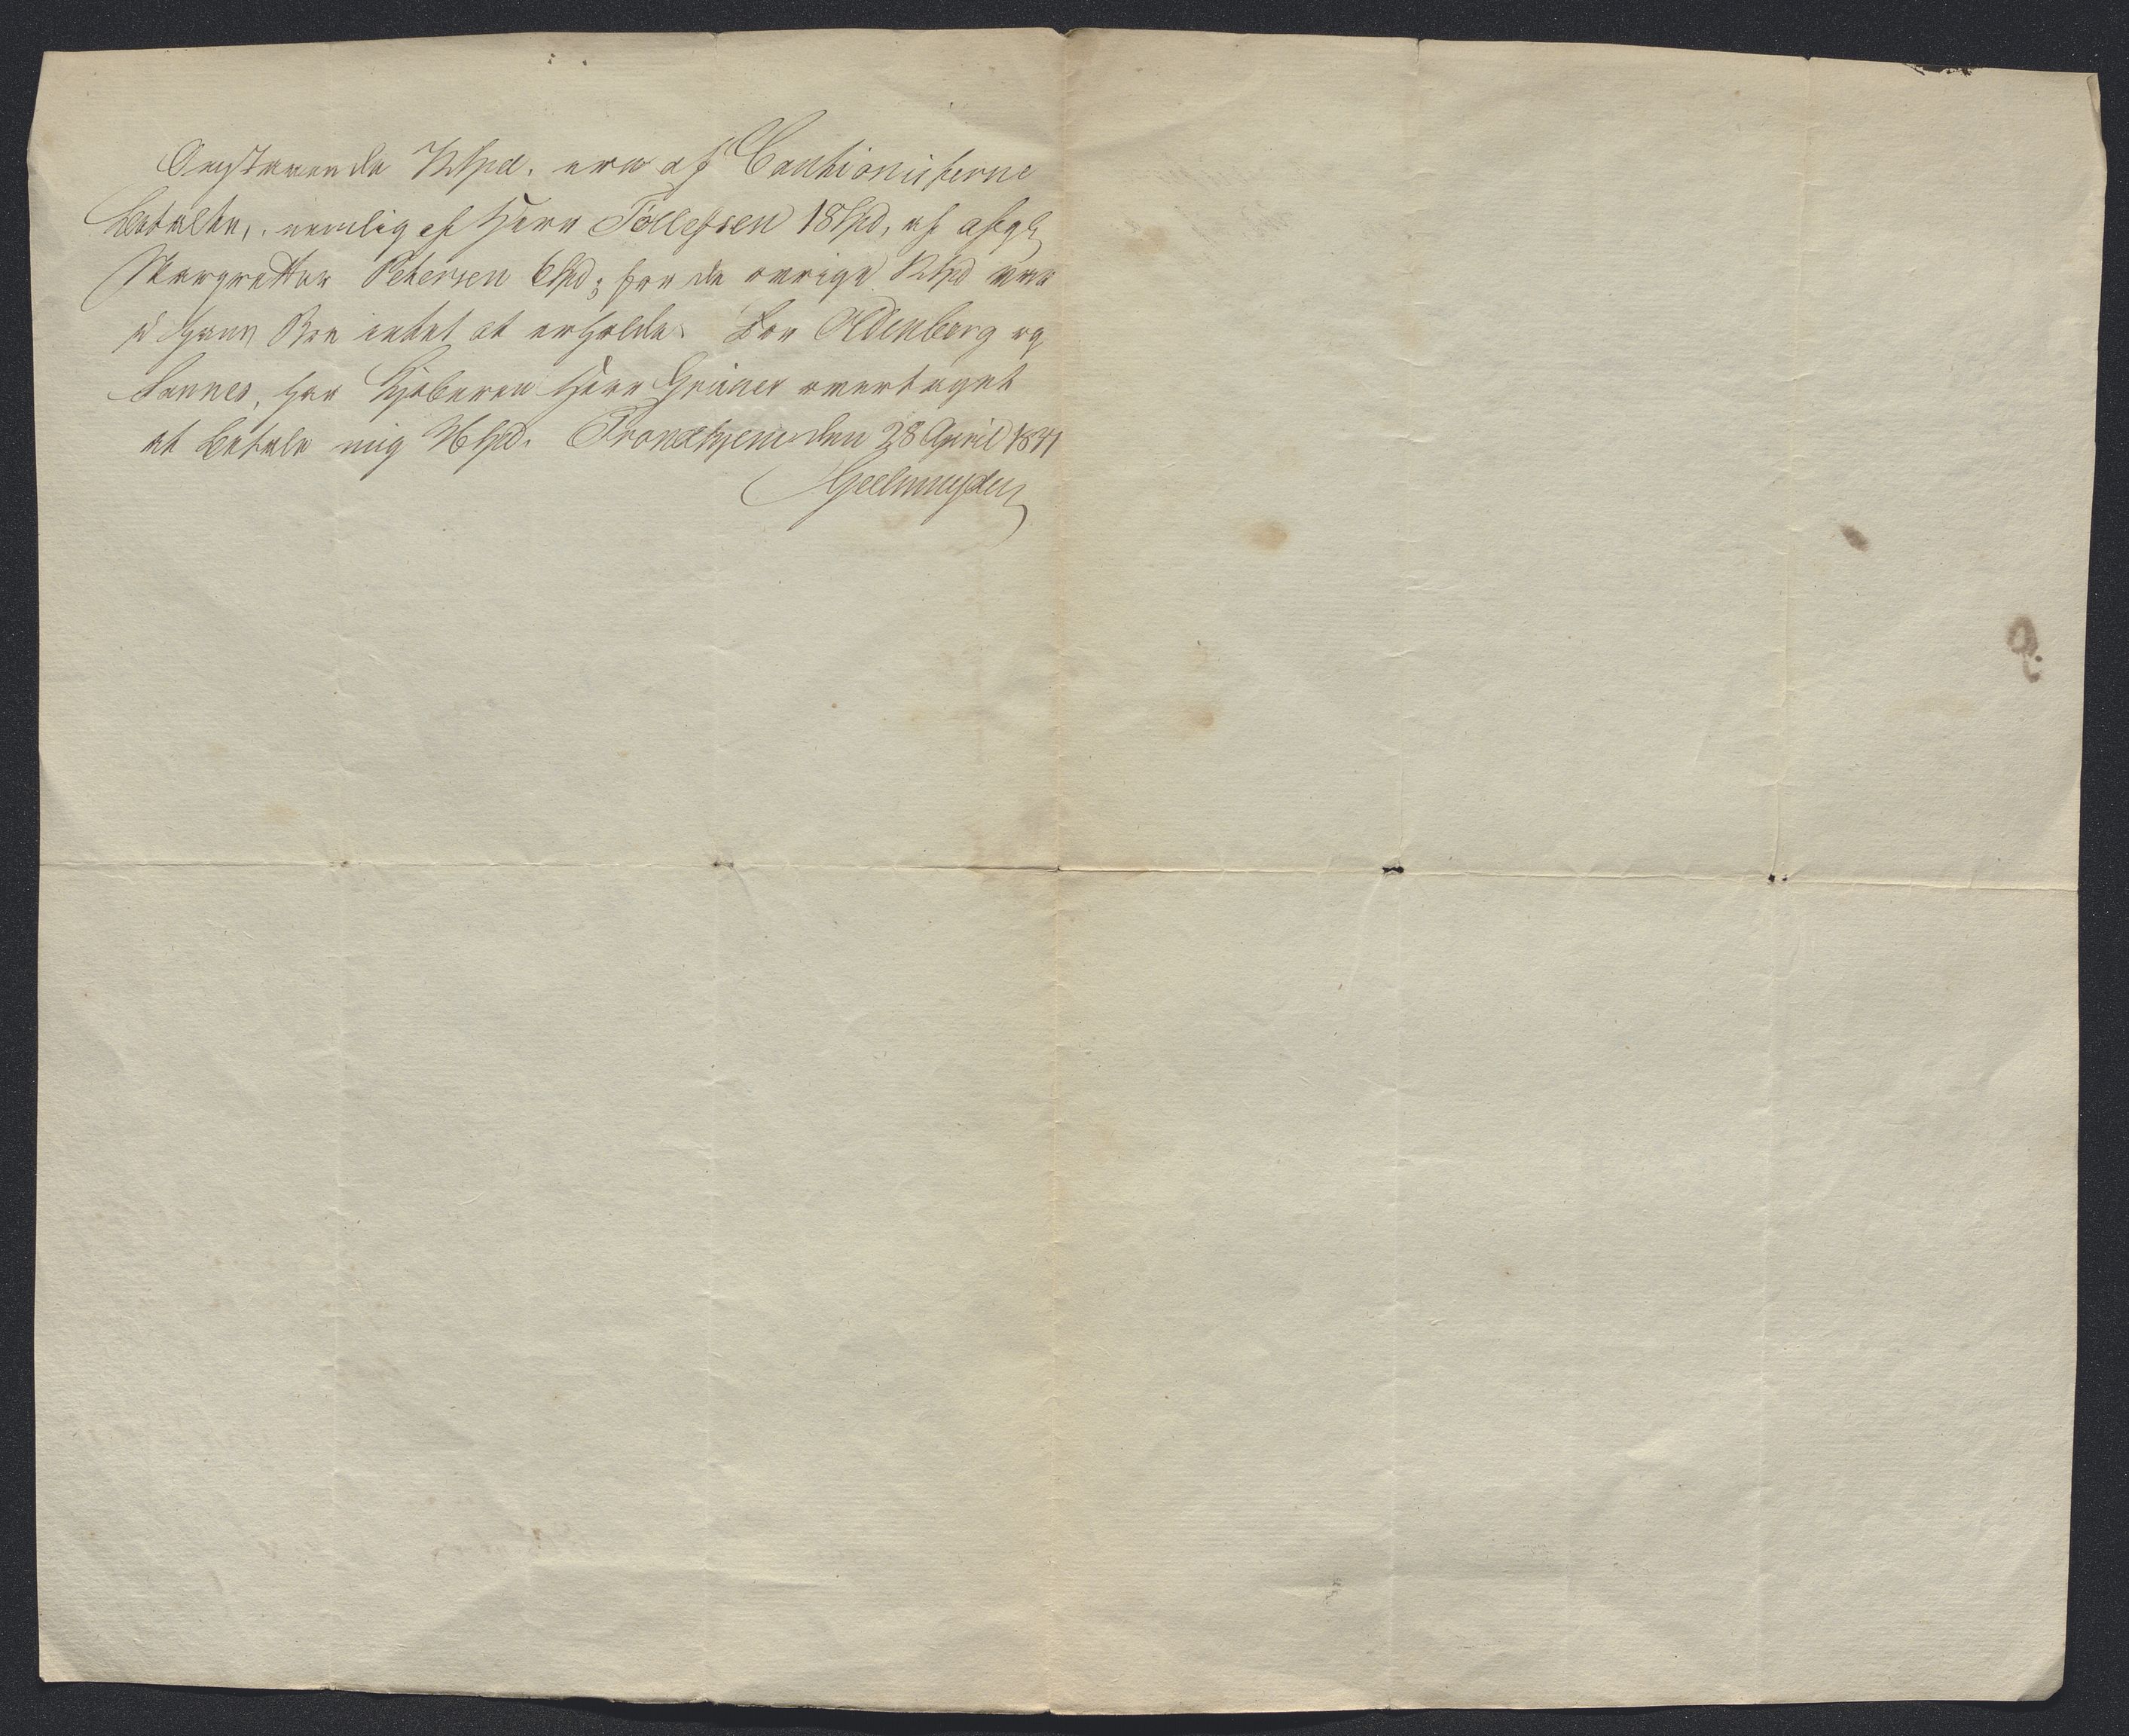 Ovenstaaende Rthpd. ere af Cautionisterne
betalte, nemlig af Herr Tollefsen 18 Spd, af afgl
Petersen 6 Spd; for de øvrige
Boe intet at erholde. For Oldenborg og
Sannes, har Kjøberen Herr Grüner overtaget
at betale mig 36 Spd. Trondhjem den 28 April 1841
Geelmuyden